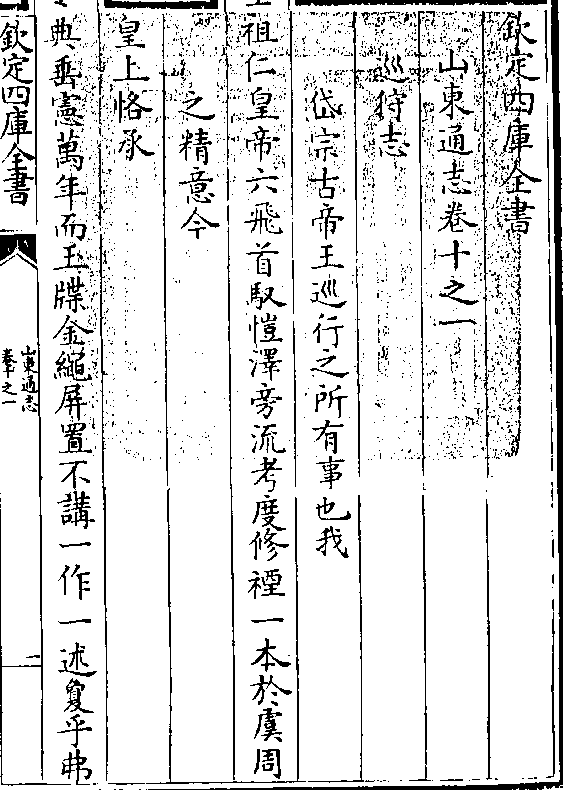 欽定四庫全書
山東通志卷十之一
巡狩志
岱宗古帝王巡行之所有事也我
祖仁皇帝六飛首馭愷澤旁流考度修禋一本於虞周
之精意今
皇上恪承
典垂憲萬年而玉牒金繩屏置不講一作一述夐乎弗
欽定四庫全書
山東通志
卷十之一
一